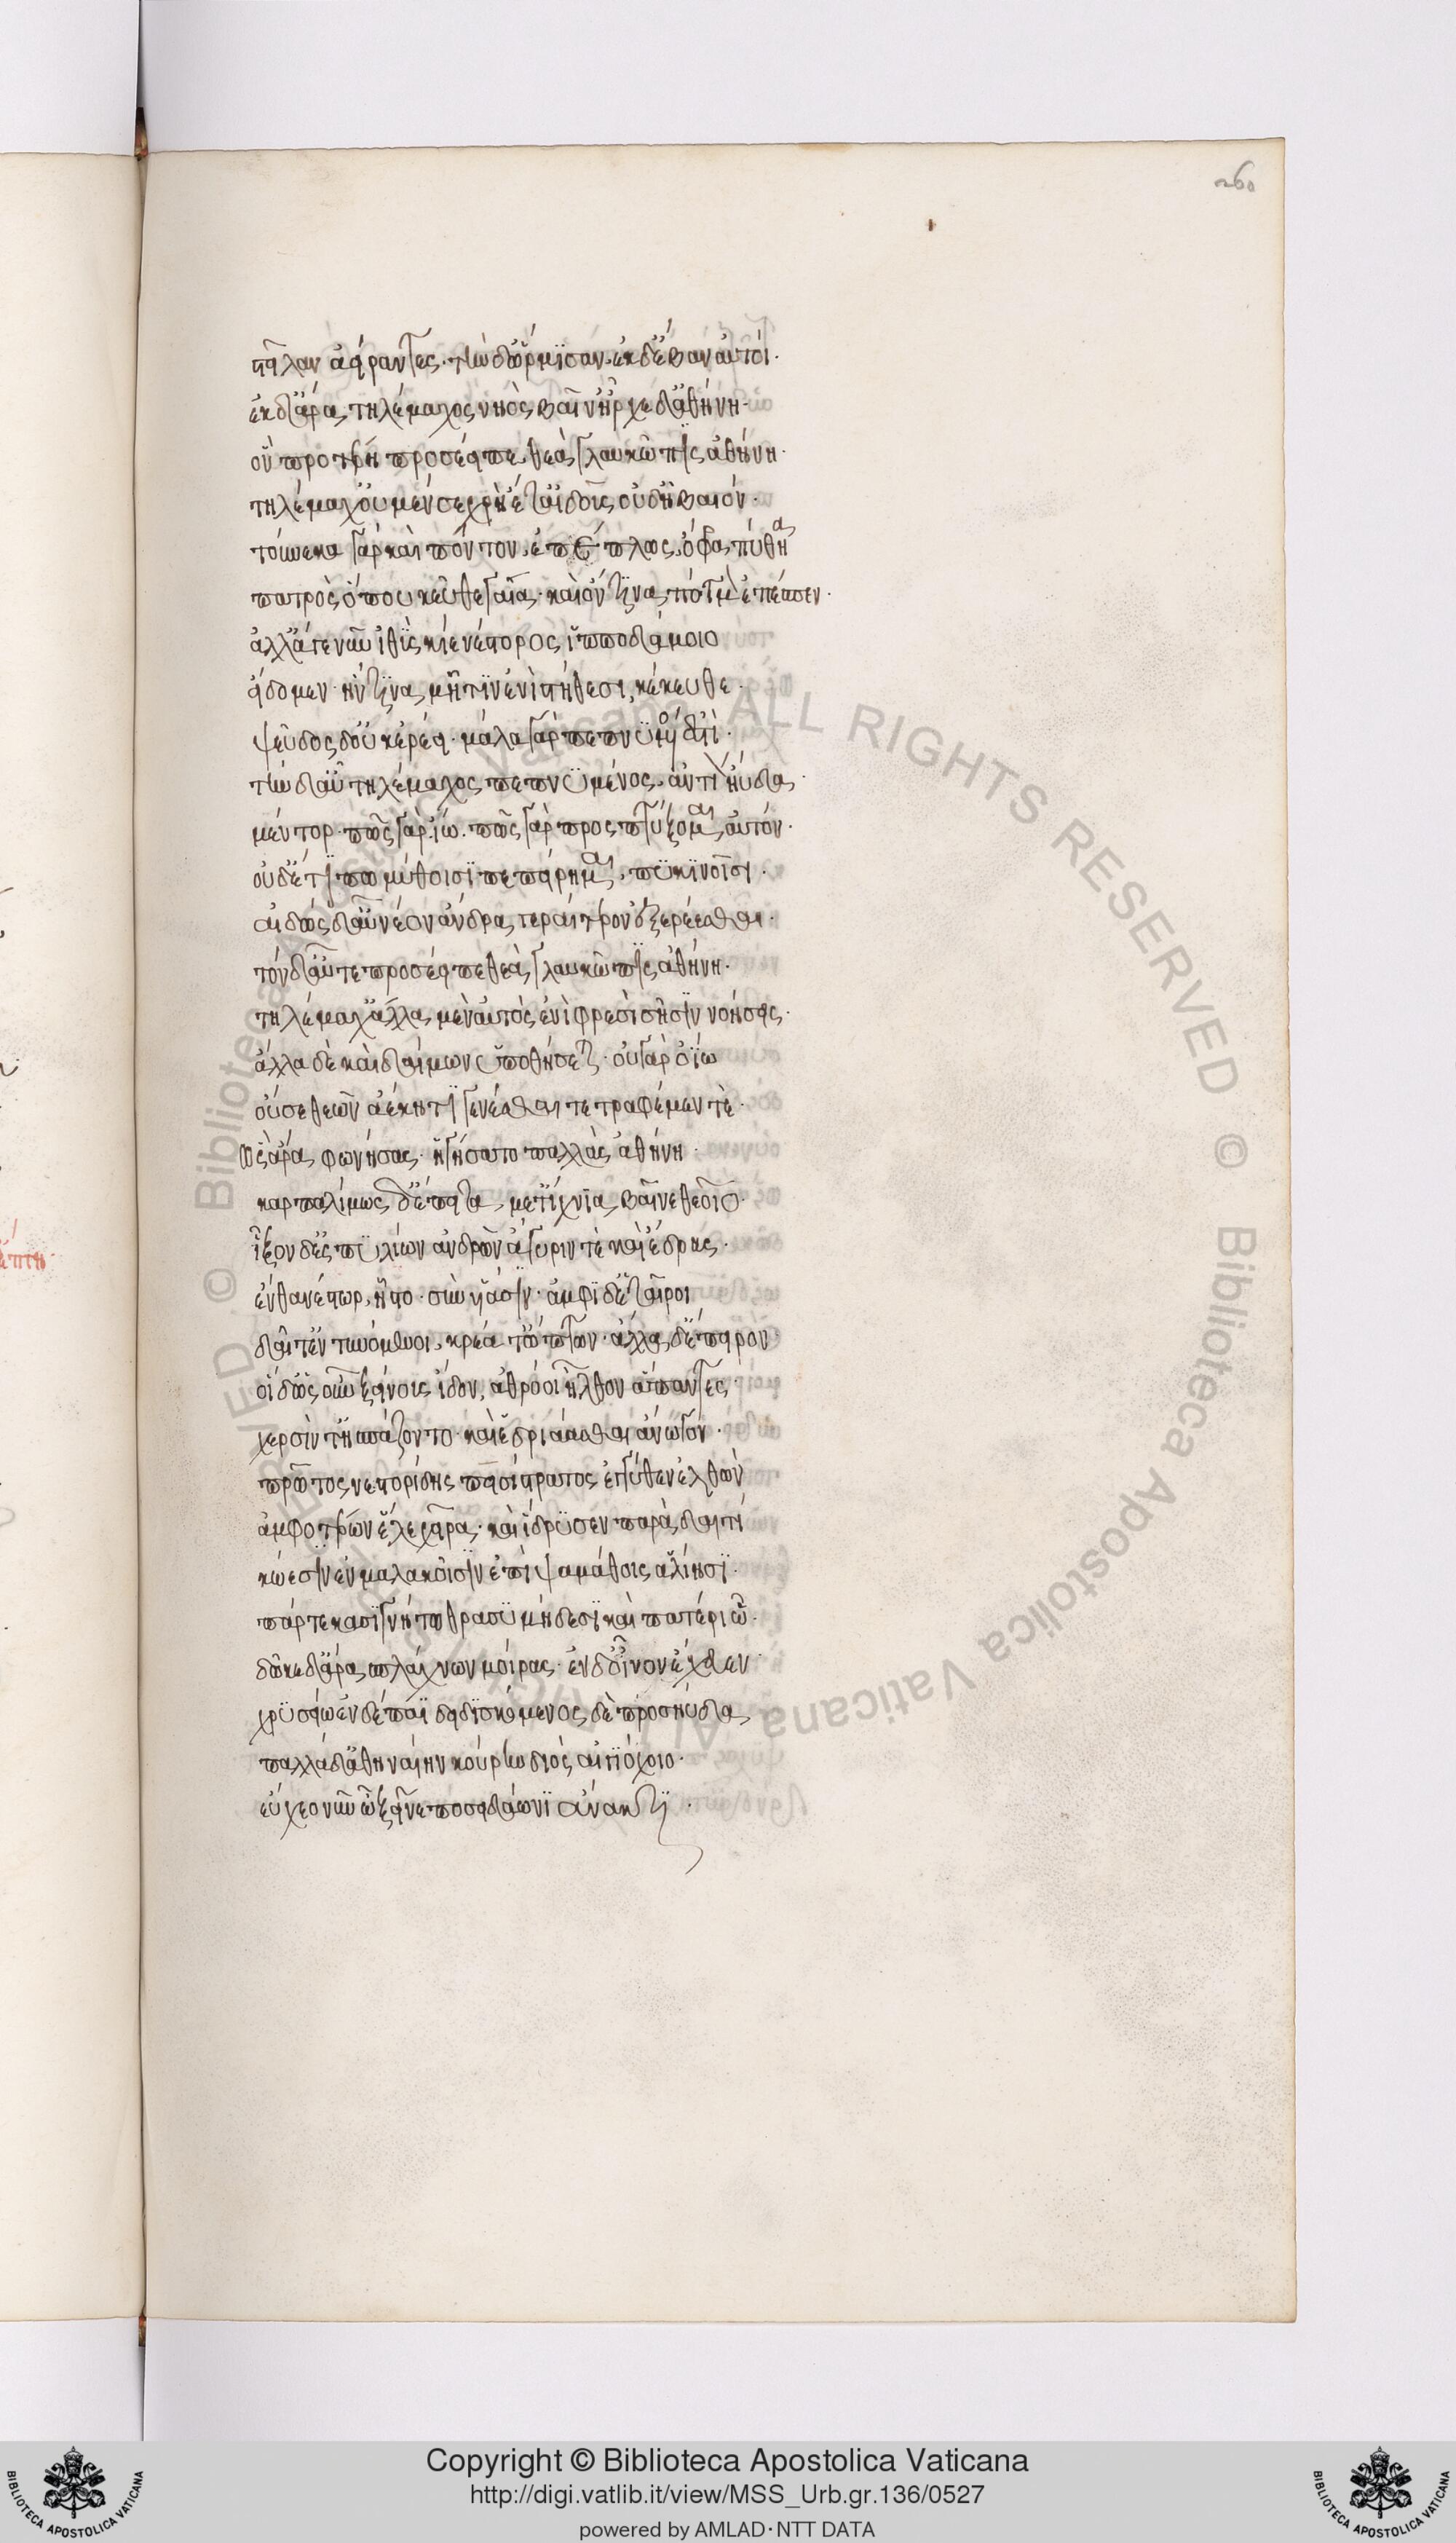 260
στεῖλαν ἀείραντες· τὴν δ' ὥρμισαν. ἐκ δ' ἔβαν αὐτοί·
ἐκ δ' ἄρα τηλέμαχος νηὸς βαῖν' ἦρχε δ' ἀθήνη·
ὃν προτέρη προσέειπε θεὰ γλαυκῶπις ἀθήνη·
τηλέμαχ' οὐ μέν σε χρὴ ἔτ' αἰδοῖς οὐδ' ἠβαιόν·
τοὔνεκα γὰρ καὶ πόντον ἐπέπλως, ὄφρα πύθηαι
πατρὸς ὅπου κεύθε γαῖα· καὶ ὅντινα πότμον ἐπέσπεν·
ἀλλ' ἄγε νῦν ἰθὺς κίε νέστορος ἱπποδάμοιο
εἴδομεν· ἥντινα μῆτιν ἐνὶ στήθεσι κέκευθε·
ψεῦδος δ' οὐκ ἐρέει· μάλα γὰρ πεπνυμένος ἐστί·
τὴν δ' αὖ τηλέμαχος πεπνυμένος ἀντίον ηὔδα·
μέντορ· πῶς γὰρ ἴω. πῶς γὰρ προσπτύξομαι αὐτόν·
οὐδέ τί πω μύθοισι πεπείρημαι πυκινοῖσι·
αἰδὼς δ' αὖ νέον ἄνδρα γεραίτερον ἐξερέεσθαι·
τὸν δ' αὖτε προσέειπε θεὰ γλαυκῶπις ἀθήνη·
τηλέμαχ' ἄλλα μὲν αὐτὸς ἐνὶ φρεσὶ σῇσιν νοήσεις·
ἄλλα δὲ καὶ δαίμων ὑποθήσεται· οὐ γὰρ ὀΐω
οὔ σε θεῶν ἀέκητι γενέσθαι τε τραφέμεν τὲ·
ὣς ἄρα φωνήσασ'· ἡγήσατο παλλὰς ἀθήνη·
καρπαλίμως δ' ἔπειτα μετ' ἴχνια βαῖνε θεοῖο·
ἷξον δ' ἐς πυλίων ἀνδρῶν ἄγυριν τὲ καὶ ἕδρας·
ἔνθα νέστωρ ἧστο· σὺν υἱάσιν· ἀμφὶ δ' ἑταῖροι
δαῖτ' ἐντυνόμενοι κρέα τ' ὤπτων· ἄλλα δ' ἔπειρον·
οἱ δ' ὡς οὖν ξείνους ἴδον, ἀθρόοι ἦλθον ἅπαντες·
χερσίν τ' ἠσπάζοντο· καὶ ἑδριάασθαι ἄνωγον·
πρῶτος νεστορίδης πεισίστρατος ἐγγύθεν ἐλθὼν
ἀμφοτέρων ἕλε χεῖρα· καὶ ἵδρυσεν παρὰ δαιτί
κώεσιν ἐν μαλακοῖσιν ἐπὶ ψαμάθοις ἁλίῃσι·
πάρ τε κασιγνήτῳ θρασυμήδεσϊ καὶ πατέρι ᾧ·
δῶκε δ' ἄρα σπλάγχνων μοίρας· ἐν δ' οἶνον ἔχευεν
χρυσείῳ ἐν δέπαϊ δειδισκόμενος δὲ προσηύδα
παλλάδ' ἀθηναίην κούρην διὸς αἰγιόχοιο·
εὔχεο νῦν ὦ ξεῖνε ποσειδάωνι ἄνακτι·
Copyright © Biblioteca Apostolica Vaticana
http://digi.vatlib.it/view/MSS_Urb.gr.136/0527
powered by AMLAD·NTT DATA